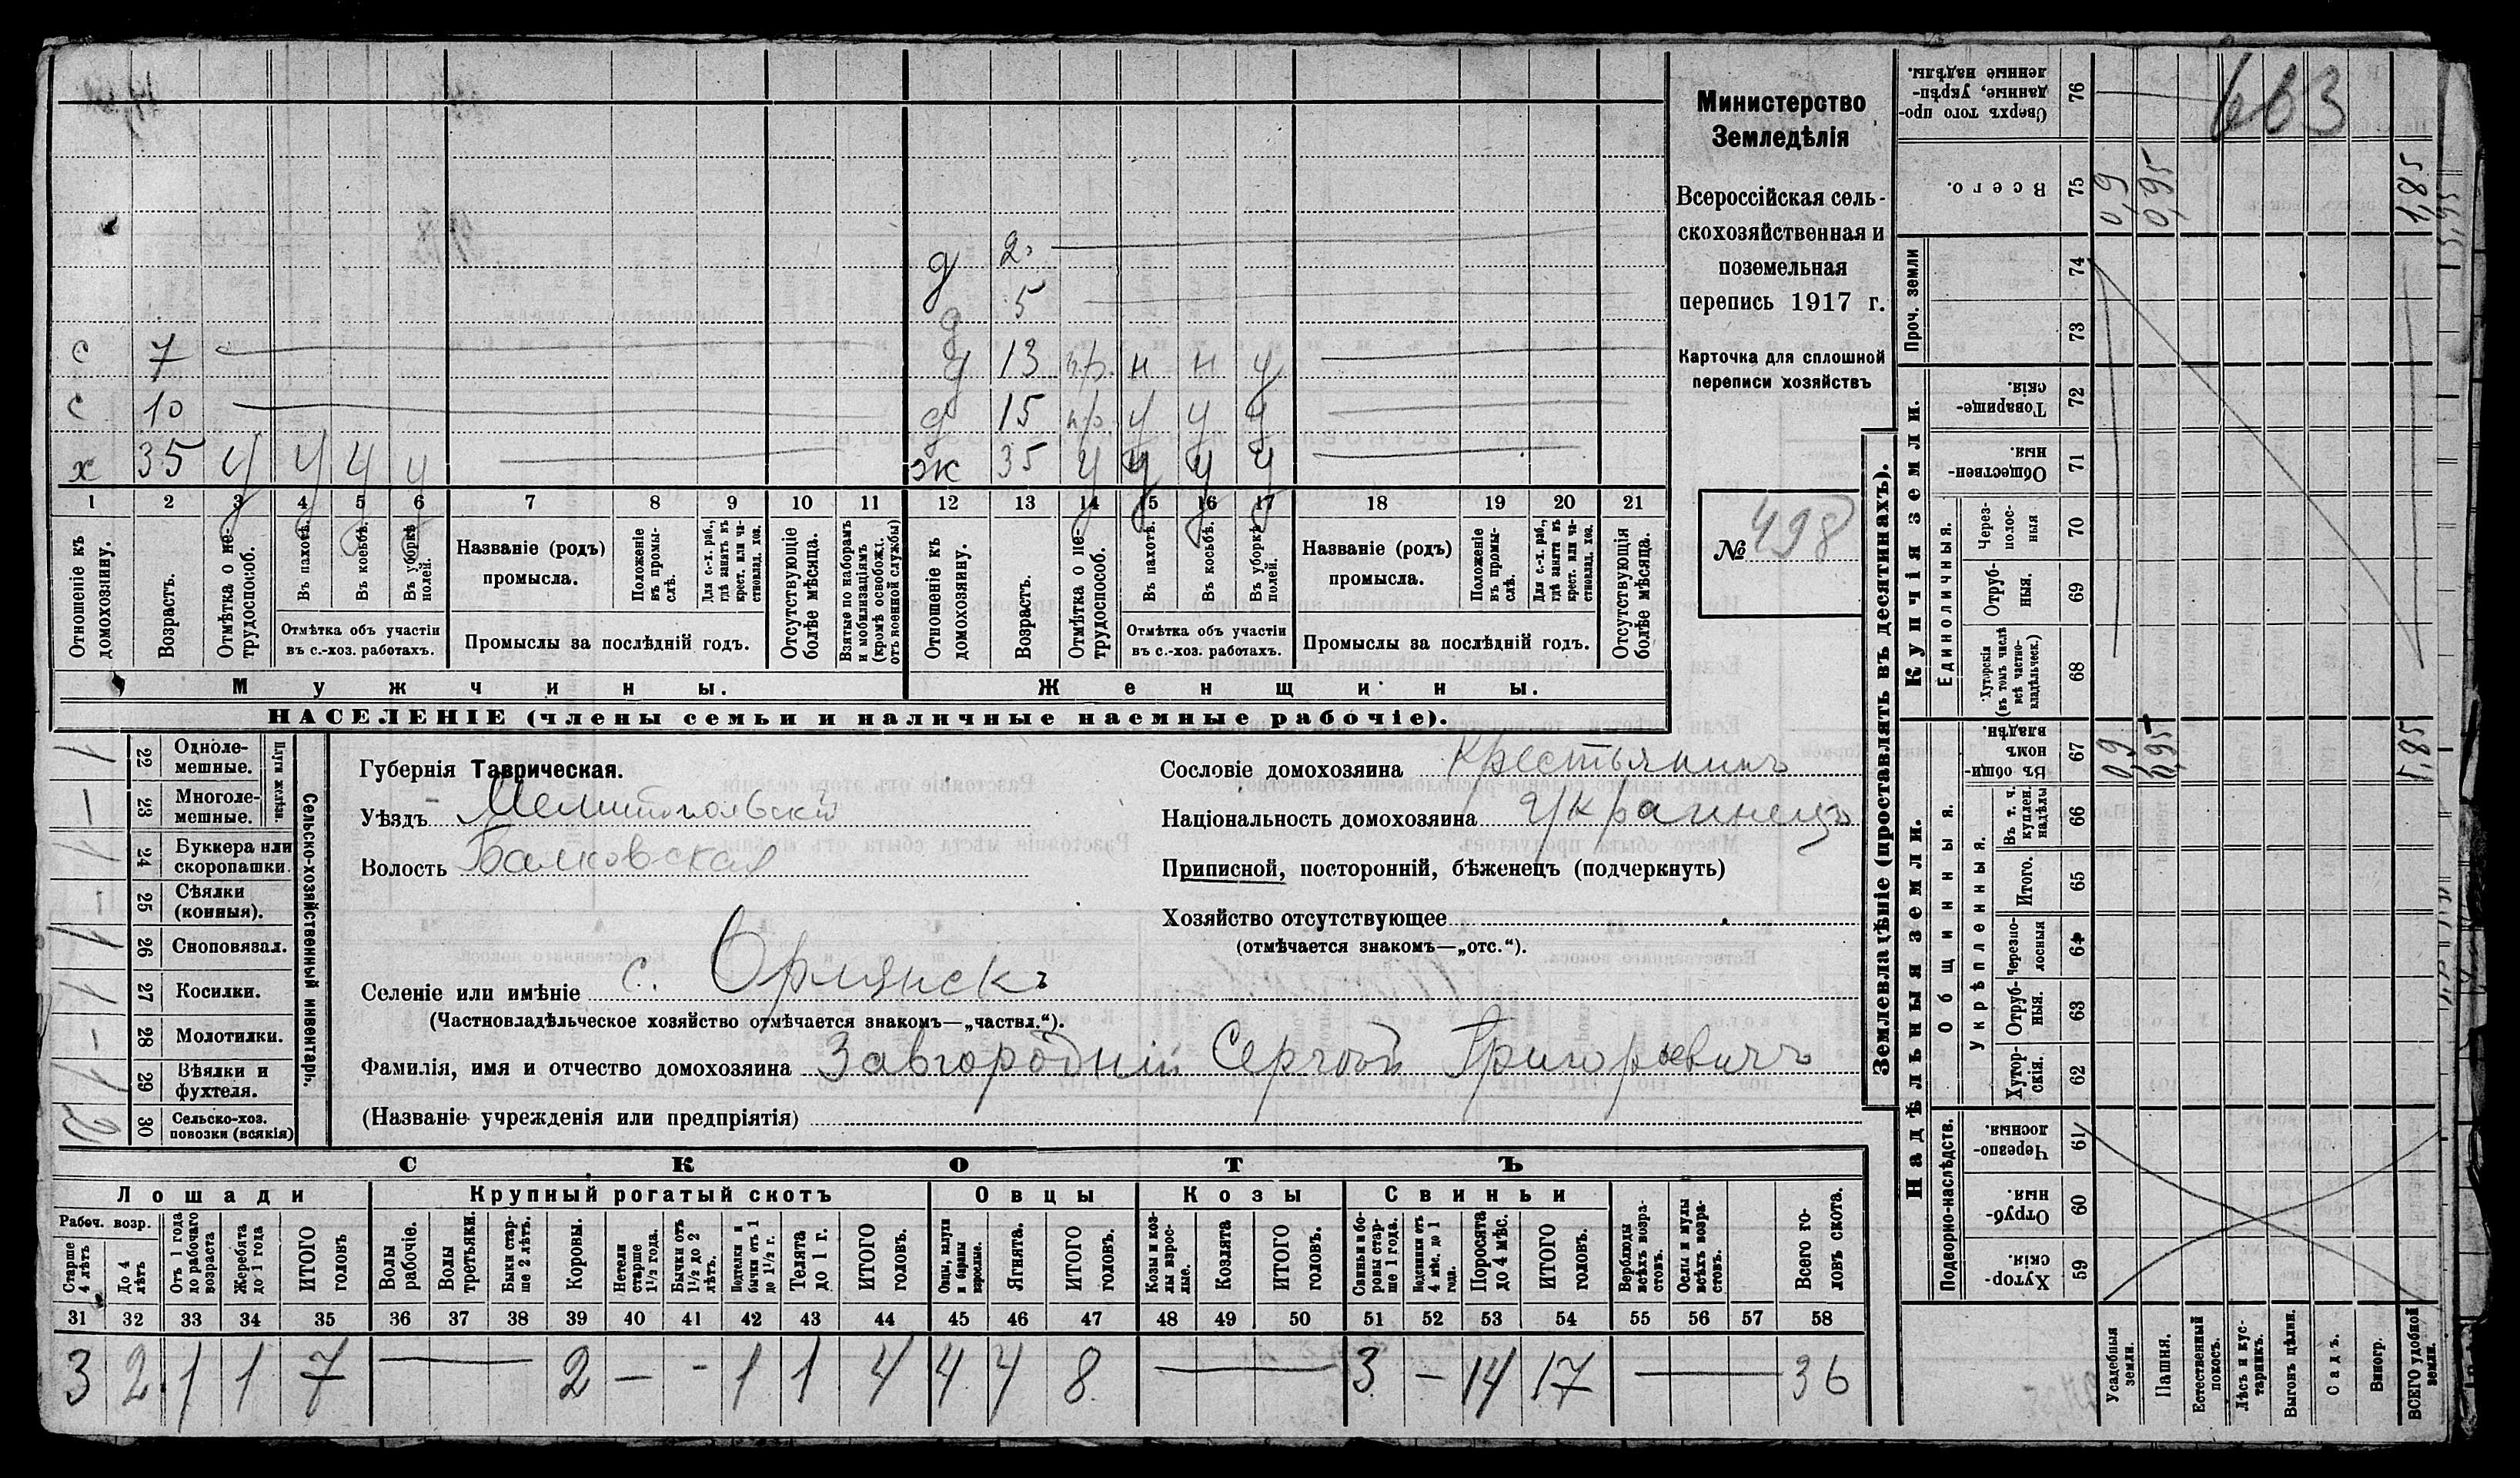 Министерство
Земледѣлія
Всероссійская сель-
скохозяйственная и
поземельная
перепись 1917 г.
Карточка для сплошной
переписи хозяйствъ
№ 498
663
д 2
д 5
с 7 д 13 пр. н н у
с 10 д 15 пр. у у у
х 35 у у у у ж 35 у у у у
1 2 3 4 5 6 7 8 9 10 11 12 13 14 15 16 17 18 19 20 21
Отношеніе къ домохозяину.
Возрастъ.
Отмѣтка о не-трудоспособ.
Въ пахотѣ.
Въ косьбѣ.
Въ уборкѣ полей.
Отмѣтка объ участіи
въ с.-хоз. работахъ.
Названіе (родъ)
промысла.
Положеніе въ промы-слѣ.
Для с.-х. раб., гдѣ занятъ въ крест. или ча-стновлад. хоз.
Промыслы за послѣдній годъ.
Отсутствующіе болѣе мѣсяца.
Взятые по наборамъ и мобилизаціямъ (кромѣ освобожд. отъ военной службы)
Отношеніе къ домохозяину.
Возрастъ.
Отмѣтка о не-трудоспособ.
Въ пахотѣ.
Въ косьбѣ.
Въ уборкѣ полей.
Отмѣтка объ участіи
въ с.-хоз. работахъ.
Названіе (родъ)
промысла.
Положеніе въ промы-слѣ.
Для с.-х. раб., гдѣ занята въ крест. или ча-стновлад. хоз.
Промыслы за послѣдній годъ.
Отсутствующія болѣе мѣсяца.
Мужчины. Женщины.
НАСЕЛЕНІЕ (члены семьи и наличные наемные рабочіе).
Сельско-хозяйственный инвентарь.
Плуги желѣзн.
1 22 Одноле-мешные.
— 23 Многоле-мешные.
1 24 Буккера или скоропашки.
- 25 Сѣялки (конныя).
1 26 Сноповязал.
1 27 Косилки.
- 28 Молотилки.
1 29 Вѣялки и фухтеля.
2 30 Сельско-хоз. повозки (всякія)
Губернія Таврическая.
Уѣздъ Мелитопольскій
Волость Балковская
Сословіе домохозяина Крестьянинъ
Національность домохозяина Украинецъ
Приписной, посторонній, бѣженецъ (подчеркнуть)
Хозяйство отсутствующее
(отмѣчается знакомъ—„отс.“).
Селеніе или имѣніе с. Орлянскъ
(Частновладѣльческое хозяйство отмѣчается знакомъ—„частвл.“).
Фамилія, имя и отчество домохозяина Завгородній Сергѣй Григорьевичъ
(Названіе учрежденія или предпріятія)
СКОТЪ
Лошади Крупный рогатый скотъ Овцы Козы Свиньи
Рабоч. возр.
Старше 4 лѣтъ
До 4 лѣтъ
Отъ 1 года до рабочаго возраста
Жеребята до 1 года
ИТОГО головъ
Волы рабочіе.
Волы третьяки.
Быки стар-ше 2 лѣтъ.
Коровы.
Нетели старше 1½ года.
Бычки отъ 1½ до 2 лѣтъ.
Подтелки и бычки отъ 1 до 1½ г.
Телята до 1 г.
ИТОГО головъ.
Овцы, валухи и бараны взрослые.
Ягнята.
ИТОГО головъ.
Козы и коз-лы взрос-лые.
Козлята
ИТОГО головъ.
Свиньи и бо-ровы стар-ше 1 года.
Подсвинки отъ 4 мѣс. до 1 года.
Поросята до 4 мѣс.
ИТОГО головъ.
Верблюды всѣхъ возра-стовъ.
Ослы и мулы всѣхъ возра-стовъ.
Всего го-ловъ скота.
31 32 33 34 35 36 37 38 39 40 41 42 43 44 45 46 47 48 49 50 51 52 53 54 55 56 57 58
3 2 1 1 7 — 2 — - 1 1 4 4 4 8 — 3 — 14 17 — 36
Землевладѣніе (проставлять въ десятинахъ).
Купчія земли.
Надѣльныя земли.
Сверхъ того про-данные, укрѣп-ленные надѣлы. 76
Всего. 75 0,9 0,95 1,85
Проч. земли 74 73
Товарище-скія. 72
Обществен-ныя. 71
Единоличныя.
Черезполос-ныя 70
Отруб-ныя. 69
Хуторскія (въ томъ числѣ всѣ частно-владѣльческ.) 68
Общинныя.
Въ общинномъ владѣн. 67 0,9 0,95 1,85
Укрѣпленныя.
Въ т. ч. куплен. надѣлы 66
Итого. 65
Черезпо-лосныя 64
Отруб-ныя. 63
Хутор-скія. 62
Подворно-наслѣдств.
Черезпо-лосныя 61
Отруб-ныя. 60
Хутор-скія 59
Усадебныя земли.
Пашня.
Естественный покосъ.
Лѣсъ и кус-тарникъ.
Выгонъ цѣлин.
Садъ.
Виногр.
ВСЕГО удобной земли.